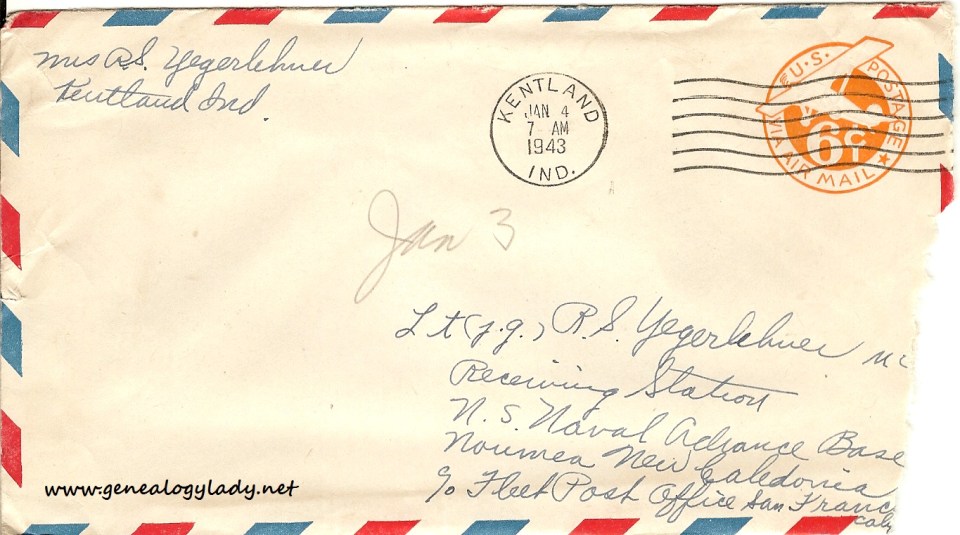 Mrs R.S. Yegerlehner
Kentland Ind.
KENTLAND
JAN 4
7 AM
1943
IND.
U.S. POSTAGE
6¢
VIA AIR MAIL
Jan 3
Lt (j.g.) R.S. Yegerlehner
Receiving Station
U.S. Naval Advance Base
Noumea New Caledonia
c/o Fleet Post Office San Franc
Cal
www.genealogylady.net